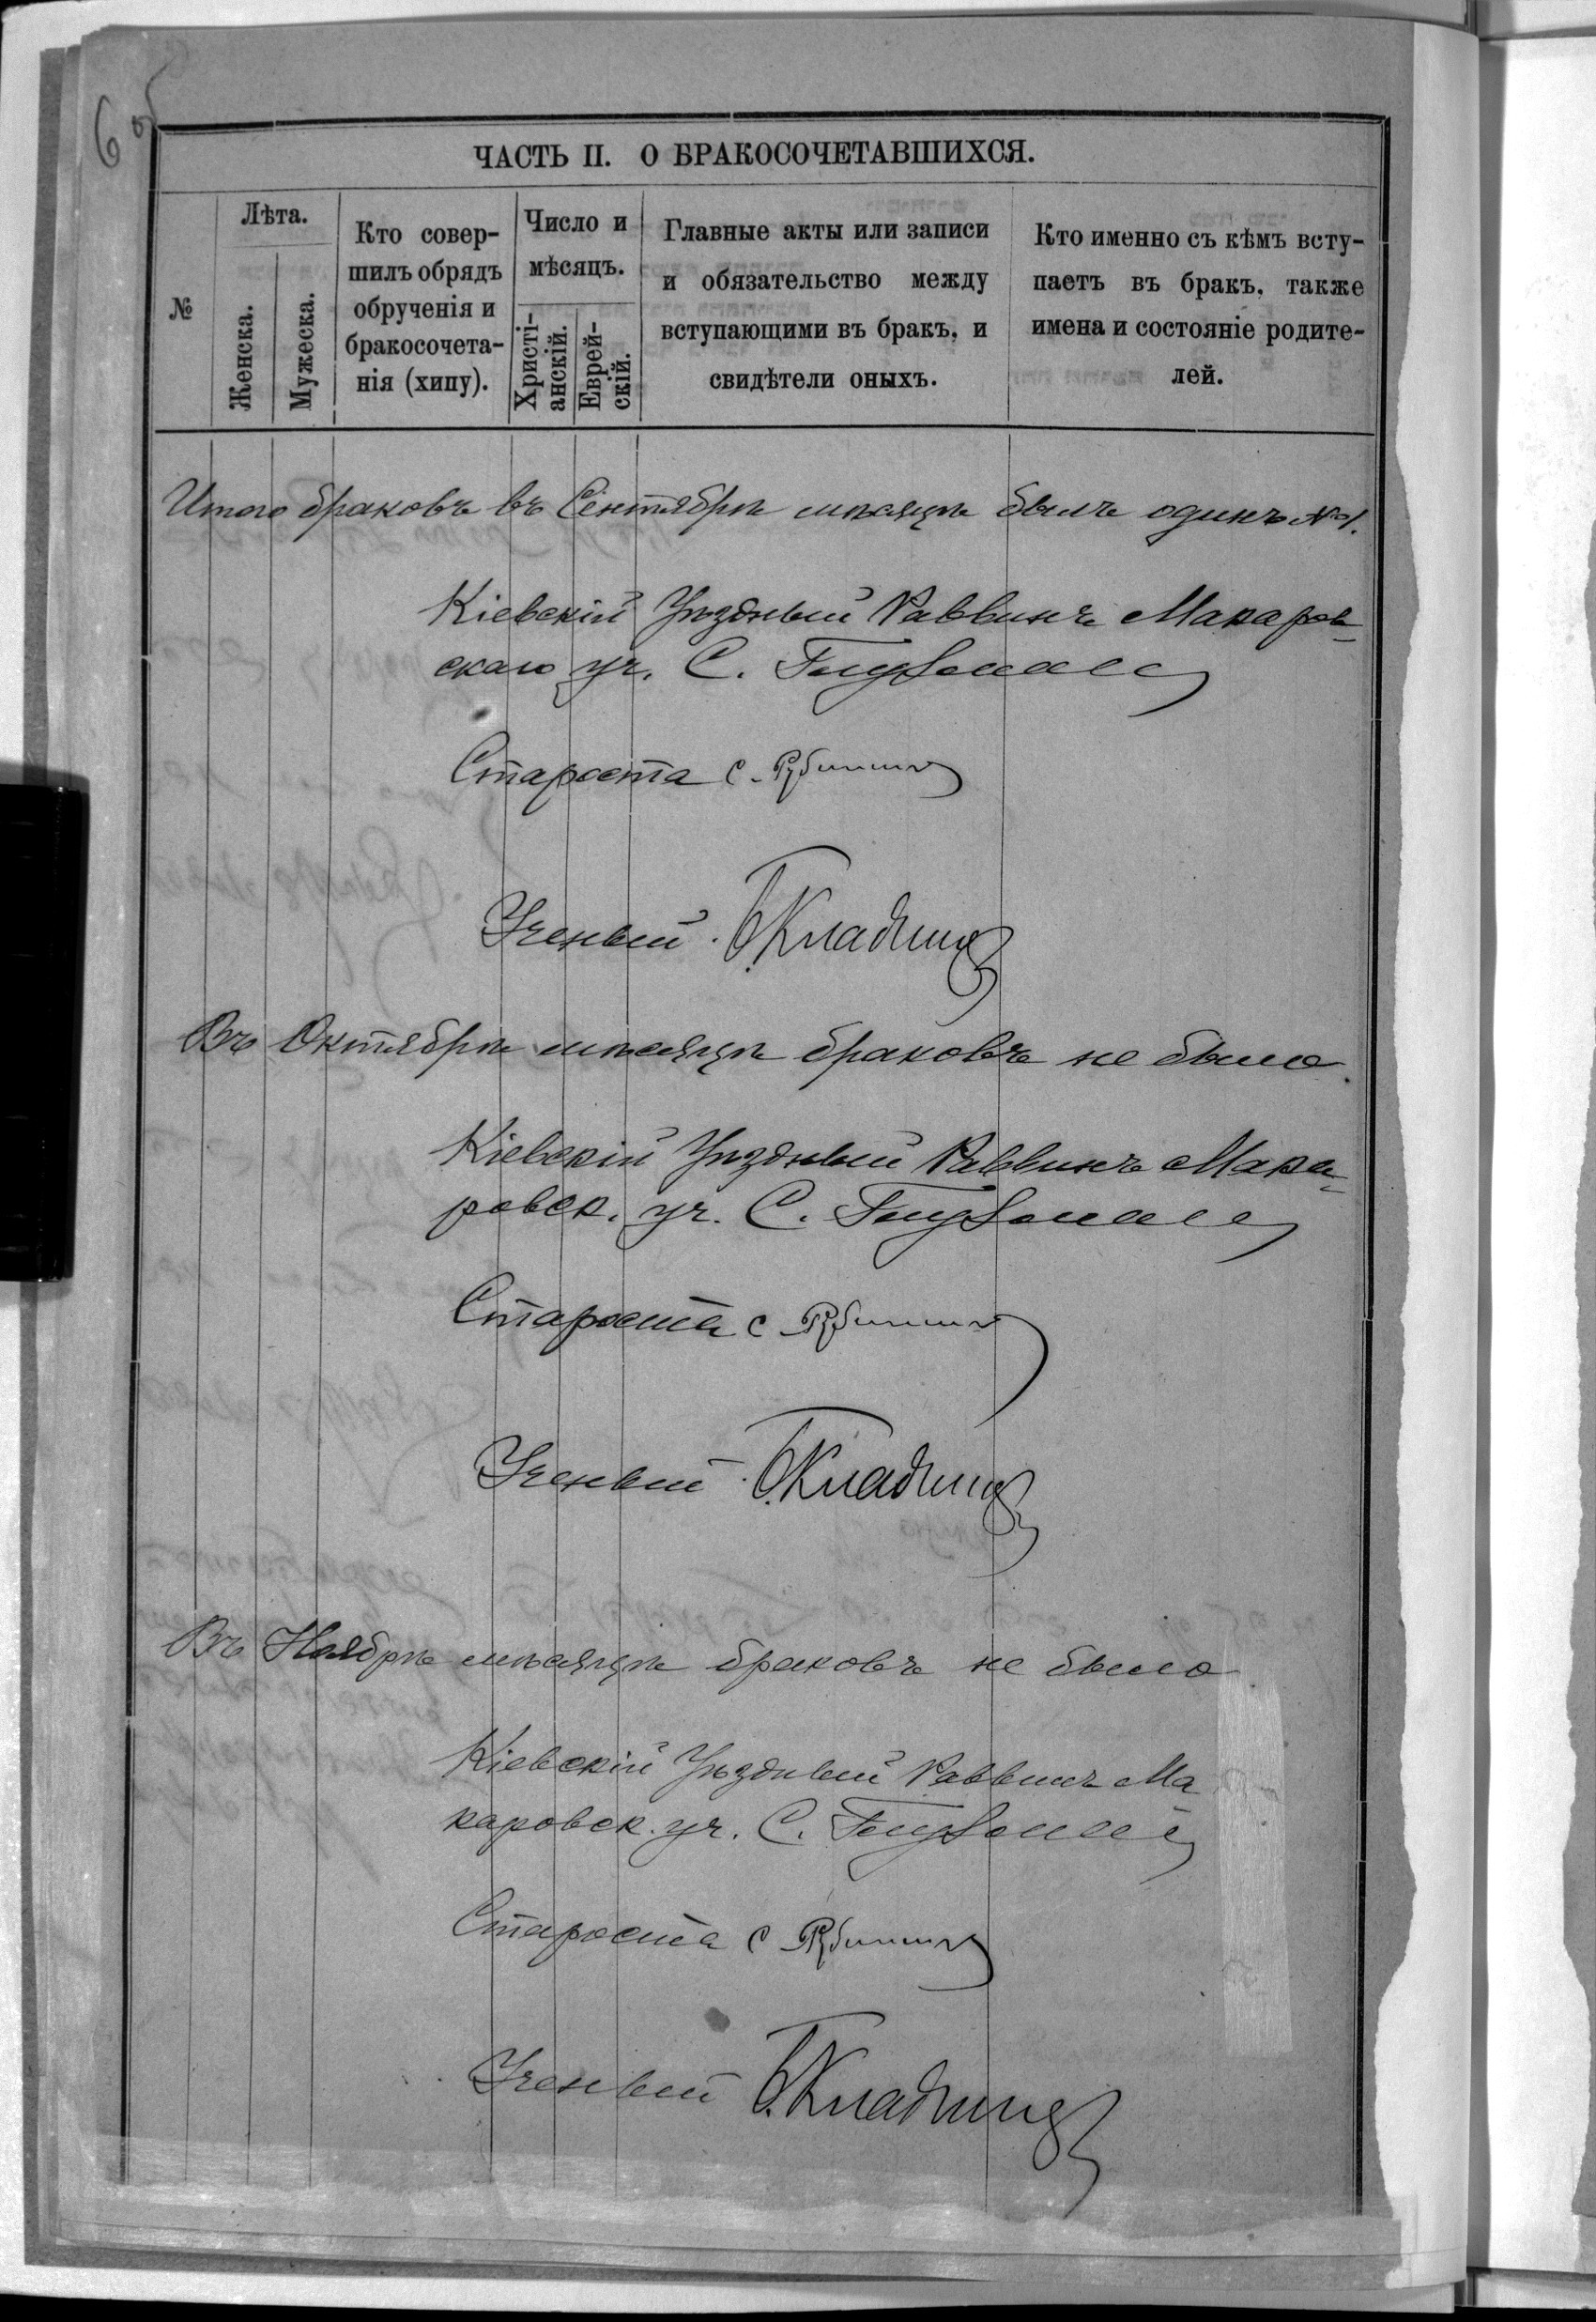 6 об
ЧАСТЬ II. О БРАКОСОЧЕТАВШИХСЯ.
№
Лѣта.
Женска.
Мужеска.
Кто совер-
шилъ обрядъ
обрученія и
бракосочета-
нія (хипу).
Число и
мѣсяцъ.
Христі-
анскій.
Еврей-
скій.
Главные акты или записи
и обязательство между
вступающими въ бракъ, и
свидѣтели оныхъ.
Кто именно съ кѣмъ всту-
паетъ въ бракъ, также
имена и состояніе родите-
лей.
Итого браковъ въ Сентябрѣ мѣсяцѣ былъ одинъ №1.
Кіевскій Уѣздный Раввинъ Макаров-
скаго уч. С.
Староста С.
Ученый
Въ Октябрѣ мѣсяцѣ браковъ не было.
Кіевскій Уѣздный Раввинъ Мака-
ровск. уч. С.
Староста С
Ученый
Въ Ноябрѣ мѣсяцѣ браковъ не было
Кіевскій Уѣздный Раввинъ Ма
каровск. уч. С.
Староста С
Ученый